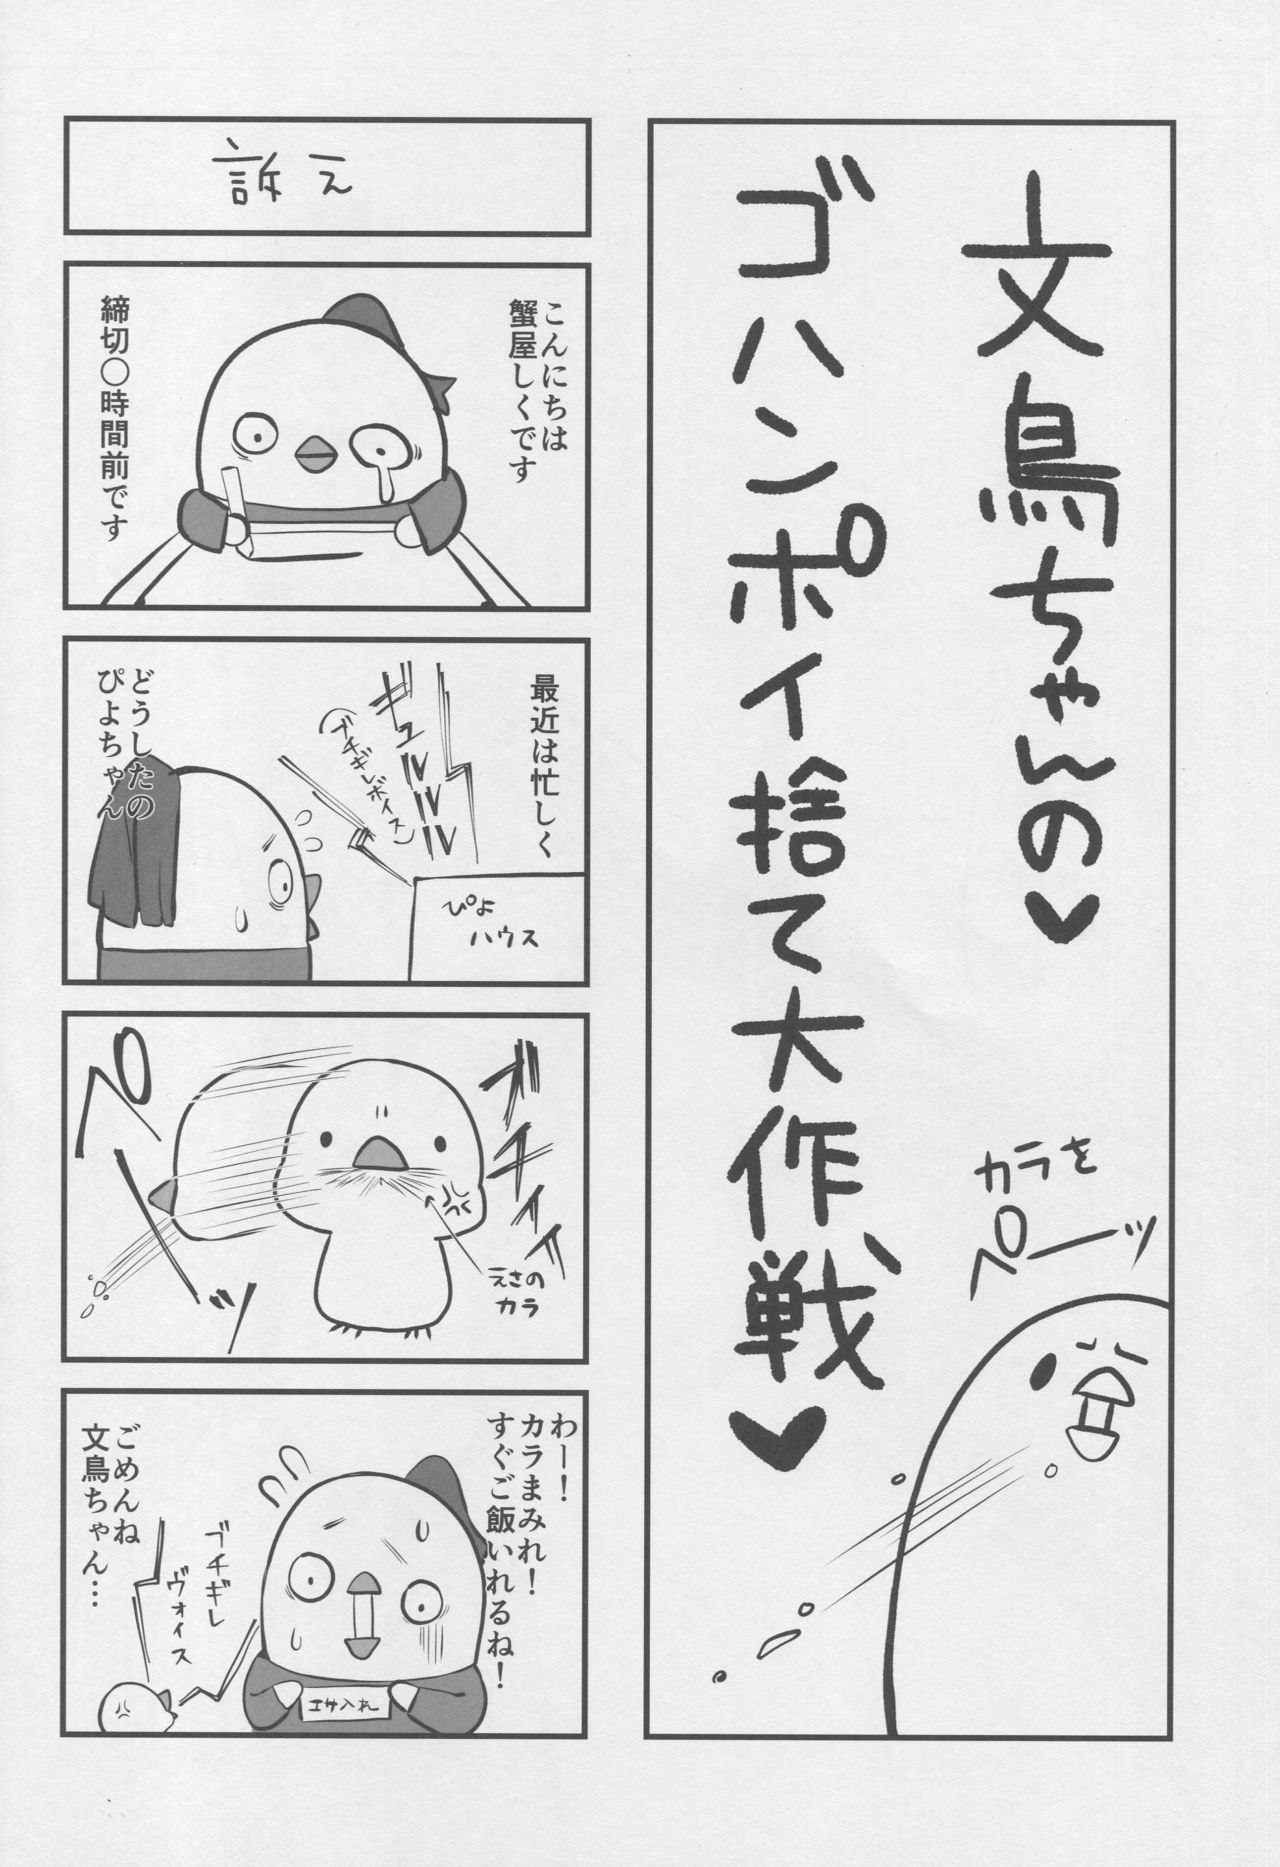 文鳥ちゃんの♥
ゴハンポイ捨て大作戦♥
カラを
ペーッ
訴え
こんにちは
蟹屋しくです
締切〇時間前です
最近は忙しく
ギュルルルル
(ブチギレボイス)
ぴよ
ハウス
どうしたの
ぴよちゃん
ブチィィィ
えさの
カラ
ペッッ
わー!
カラまみれ!
すぐご飯いれるね!
エサ入れ
ブチギレ
ヴォイス
ごめんね
文鳥ちゃん…